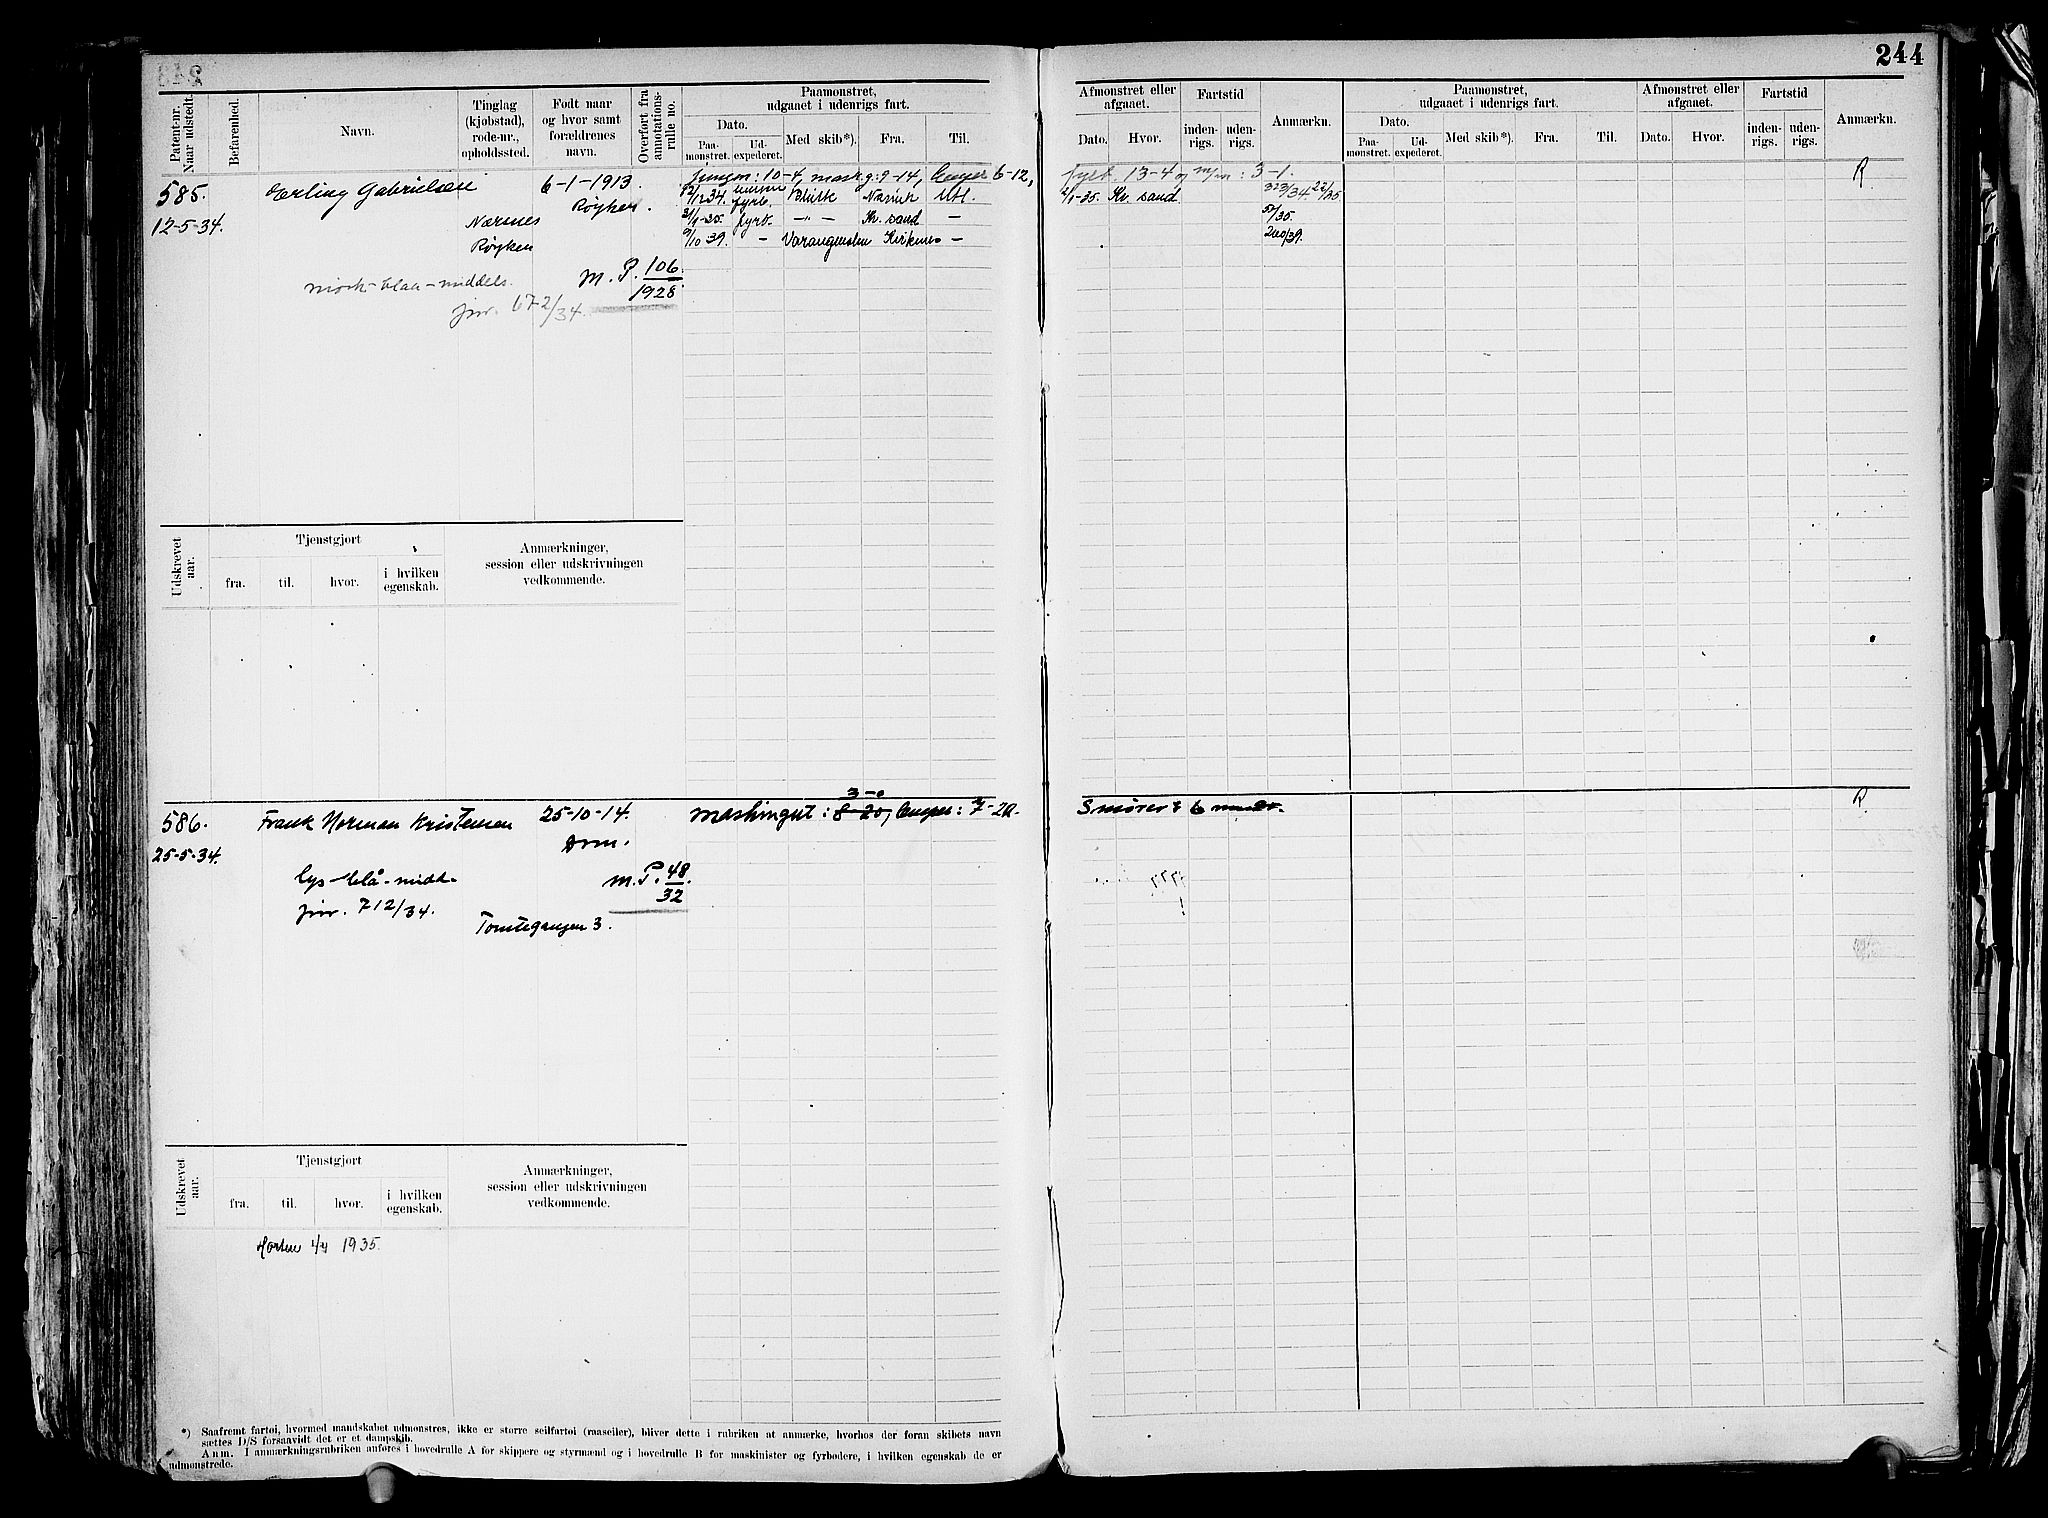 244
Patent-nr. Naar udstedt.
Befarenhed.
Navn.
Tinglag (kjøbstad), rode-nr., opholdssted.
Født naar og hvor samt forældrenes navn.
Overført fra annotations-rulle no.
Paamønstret, udgaaet i udenrigs fart.
Dato.
Paa-mønstret.
Ud-expederet.
Med skib*).
Fra.
Til.
Afmønstret eller afgaaet.
Dato.
Hvor.
Fartstid
inden-rigs.
uden-rigs.
Anmærkn.
Paamønstret, udgaaet i udenrigs fart.
Dato.
Paa-mønstret.
Ud-expederet.
Med skib*).
Fra.
Til.
Afmønstret eller afgaaet.
Dato.
Hvor.
Fartstid
inden-rigs.
uden-rigs.
Anmærkn.
585.
12-5-34.
Erling Gabrielsen
6-1-1913.
Røyken.
Nærsnes
Røyken
mørk-blaa-middels.
M. P. 106/1928
jnr. 672/34.
jungm: 10-4, mask.g: 9-14, lemper 6-12,
fyrb. 13-4 og : 3-1.
R
12/12 34. fyrb. Narvik Utl.
2/1-35. Kr. sand
323/34. 22/35.
2/1-35. fyrb. -"- Kr. sand -
51/35.
9/10 39. - Varangnes Kirkenes -
200/39.
Udskrevet aar.
Tjenstgjort
fra.
til.
hvor.
i hvilken egenskab.
Anmærkninger, session eller udskrivningen vedkommende.
586.
25-5-34.
Frank Norman Kristensen
25-10-14.
Drm.
3-0
maskingut: 8-20, lemper: 7-20.
Smører: 6 mndr.
R.
lys-blå-midd.
M. P. 48/32.
jnr. 712/34.
Tomtegangen 3.
Udskrevet aar.
Tjenstgjort
fra.
til.
hvor.
i hvilken egenskab.
Anmærkninger, session eller udskrivningen vedkommende.
Horten 1/4 1935.
*) Saafremt fartøi, hvormed mandskabet udmønstres, ikke er større seilfartøi (raaseiler), bliver dette i rubriken at anmerke, hvorhos der foran skibets navn
sættes D/S forsaavidt det er et dampskib.
Anm. I anmærkningsrubriken anføres i hovedrulle A for skippere og styrmænd og i hovedrulle B for maskinister og fyrbødere, i hvilken egenskab de er
udmønstrede.